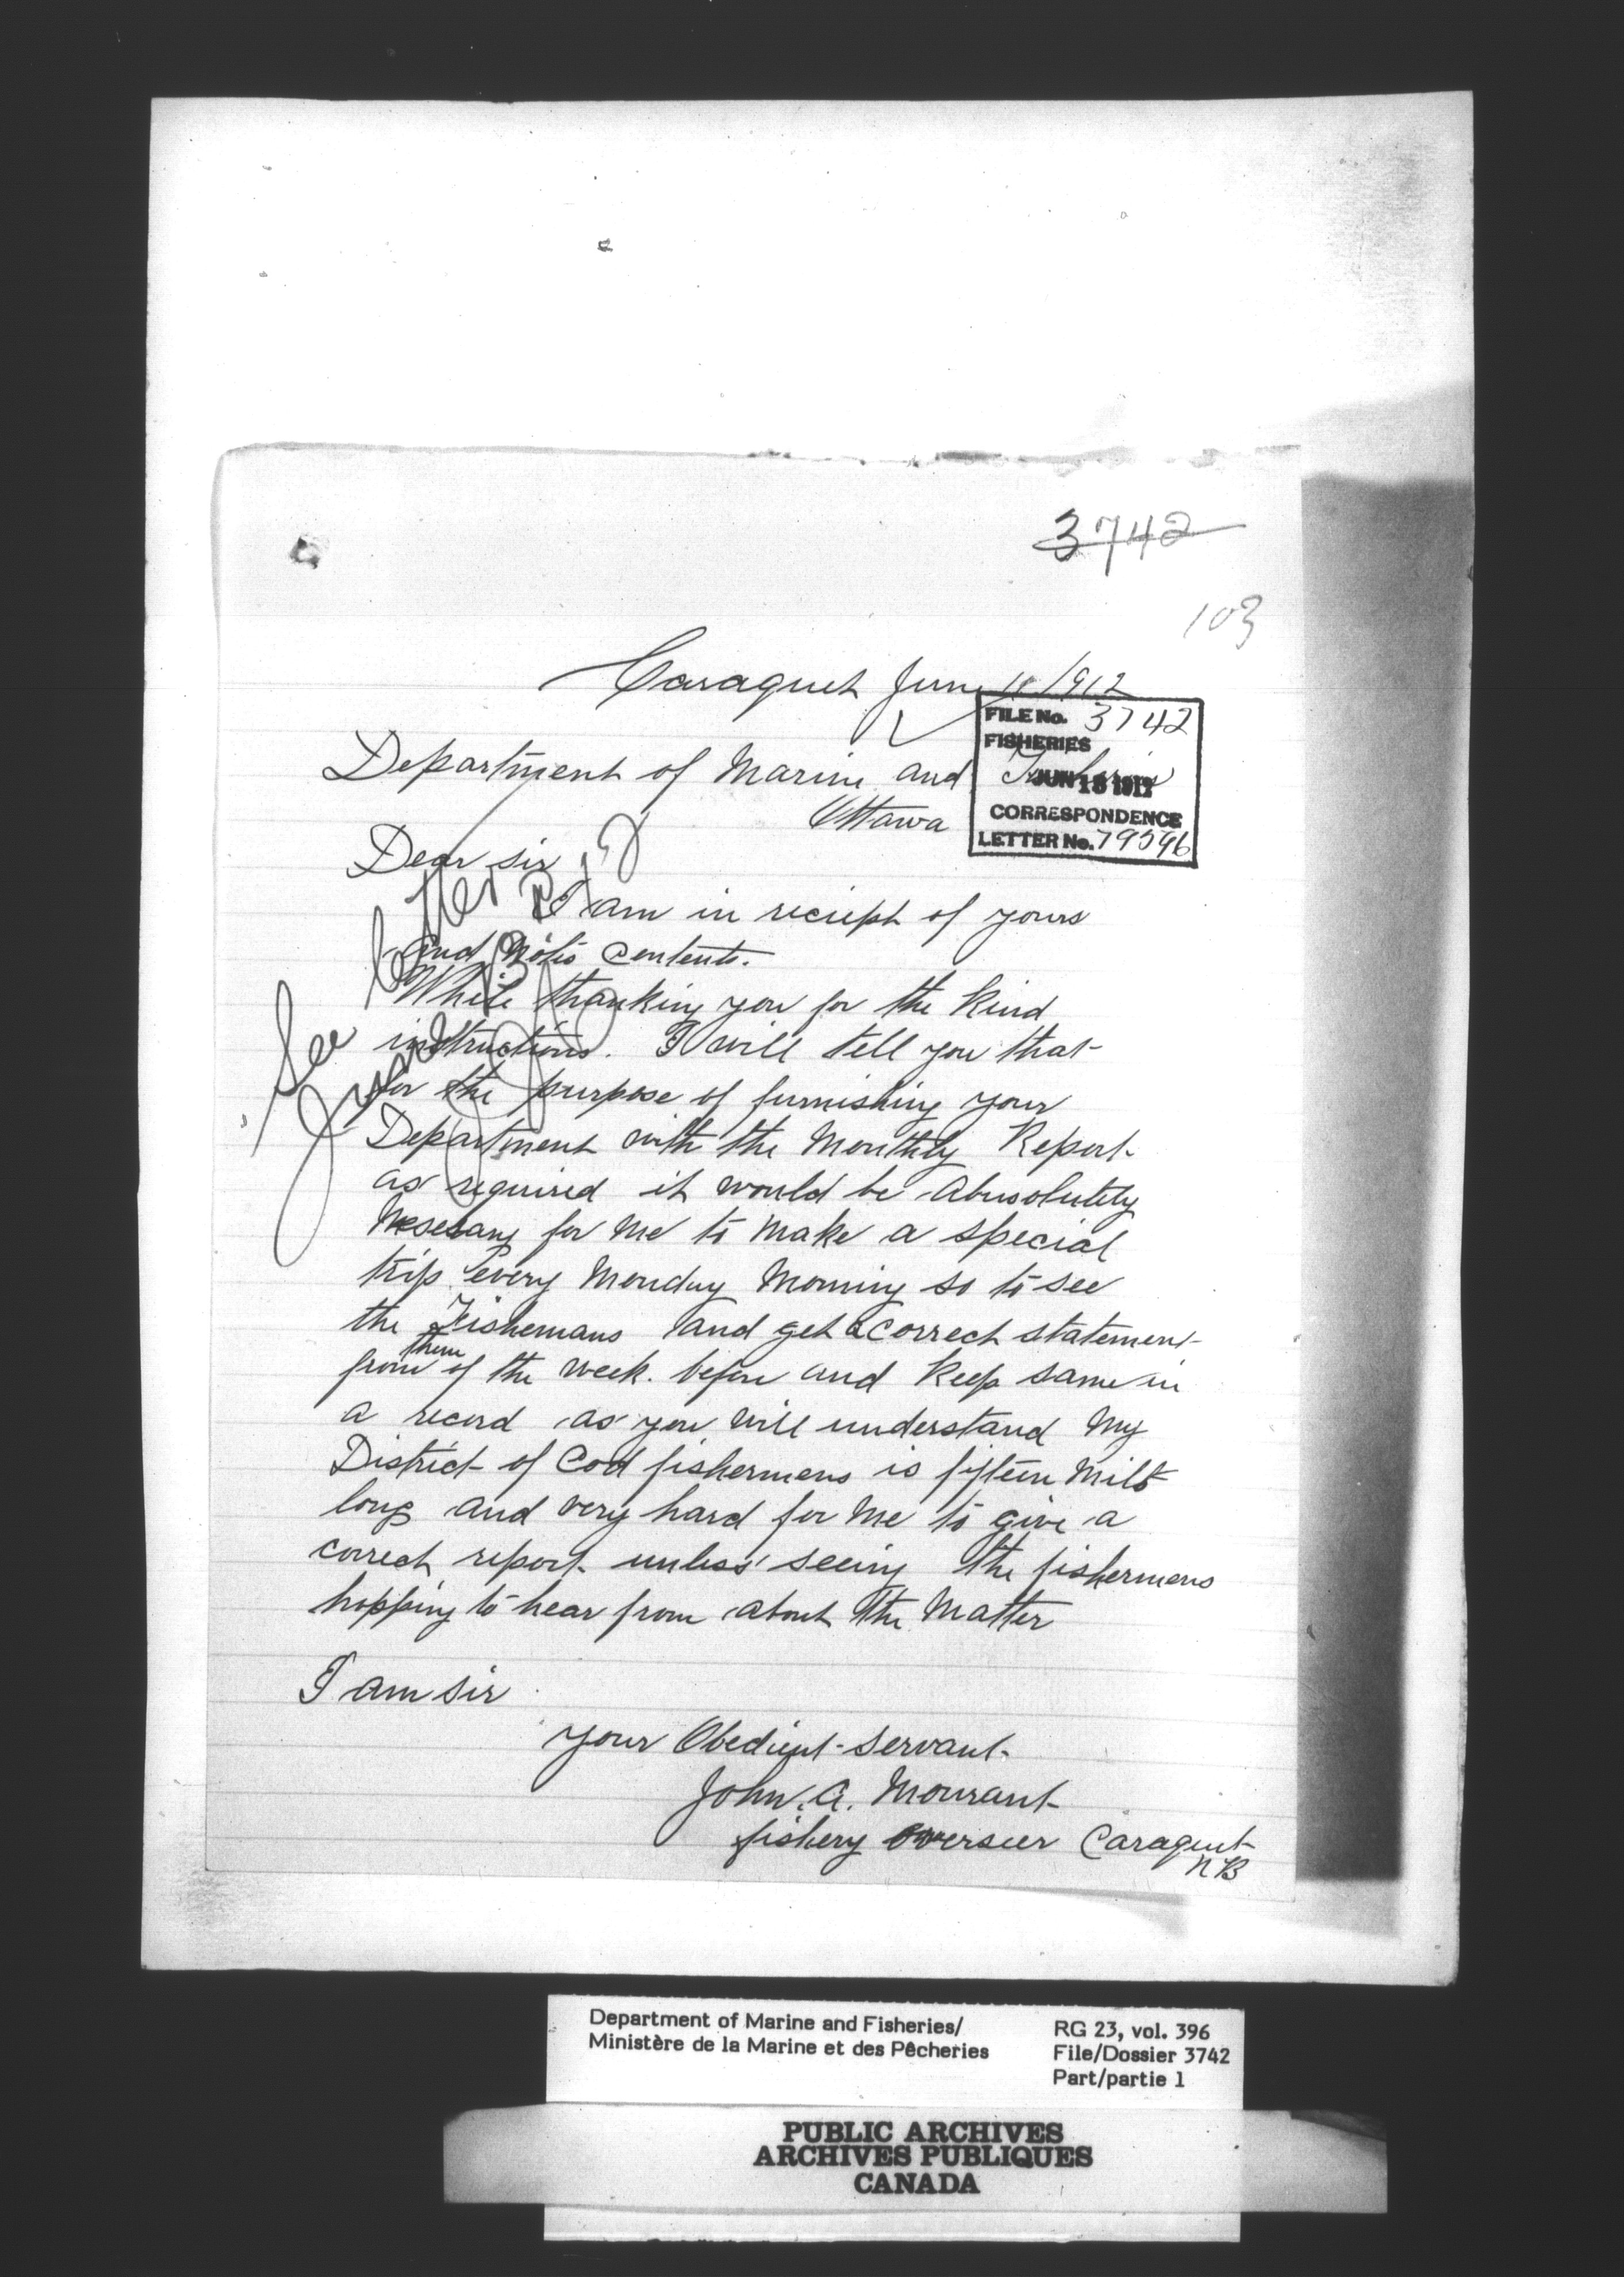 3742
103
Caraquet June 11/1912
FILE No. 3742
FISHERIES
JUN 18 1912
CORRESPONDENCE
LETTER No. 79596
Department of Marine and Fisheries
Ottawa
Dear sir
I am in reciept of yours
and contents.
While thanking you for the kind
instructions. I will tell you that
for the purpose of furnishing your
Department with the Monthly Report
as required it would be abusolutely
Nesesary for Me to Make a special
trip every Monday Morning so to see
the Fishemans and get a correct statement
from them of the week. before and keep same in
a record as you will understand My
District of Cod fishermens is fifteen Miles
long and very hard for Me to give a
correct report unless seeing the fishermens
hopping to hear from about the Matter
I am sir
your Obedient servant
John. A. Mourant
fishery overseer Caraquet
NB
See letter
June
Department of Marine and Fisheries/
Ministère de la Marine et des Pêcheries
RG 23, vol. 396
File/Dossier 3742
Part/partie 1
PUBLIC ARCHIVES
ARCHIVES PUBLIQUES
CANADA